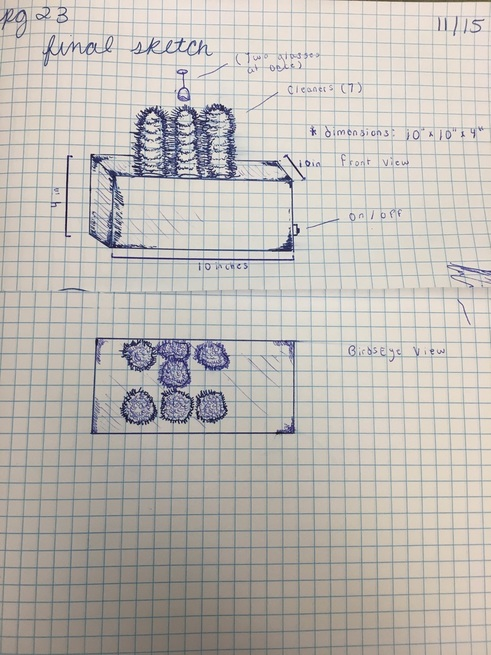 pg 23
11/15
final sketch
(Two glasses
at once)
Cleaners (7)
* dimensions: 10" x 10" x 4"
10in
front view
4 in
on/off
10 inches
BirdsEye View